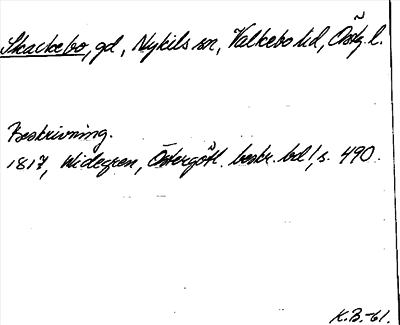 Skackebo, gd, Nykils sn, Valkebo hd, Östg. l.
Beskrivning.
1817, Widegren, Östergötl. beskr. bd 1, s. 490.
K.B.-61.